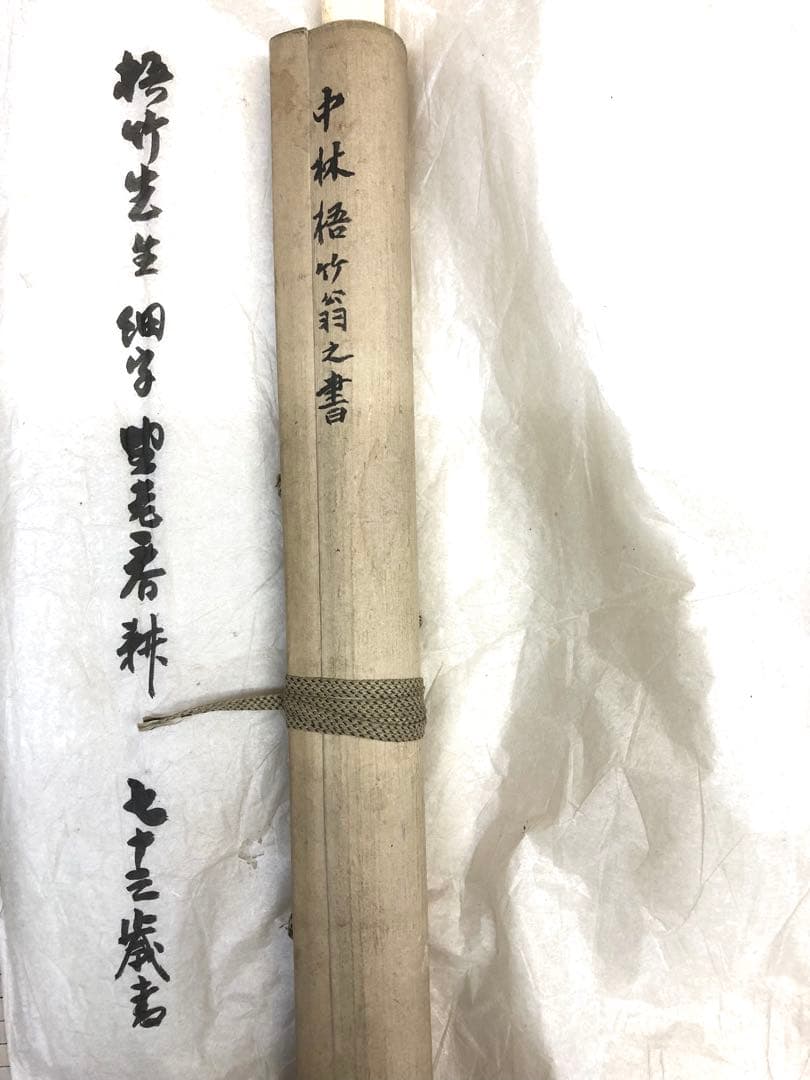 中林梧竹翁之書
梧竹先生 細字 野老春耕 七十三歳書